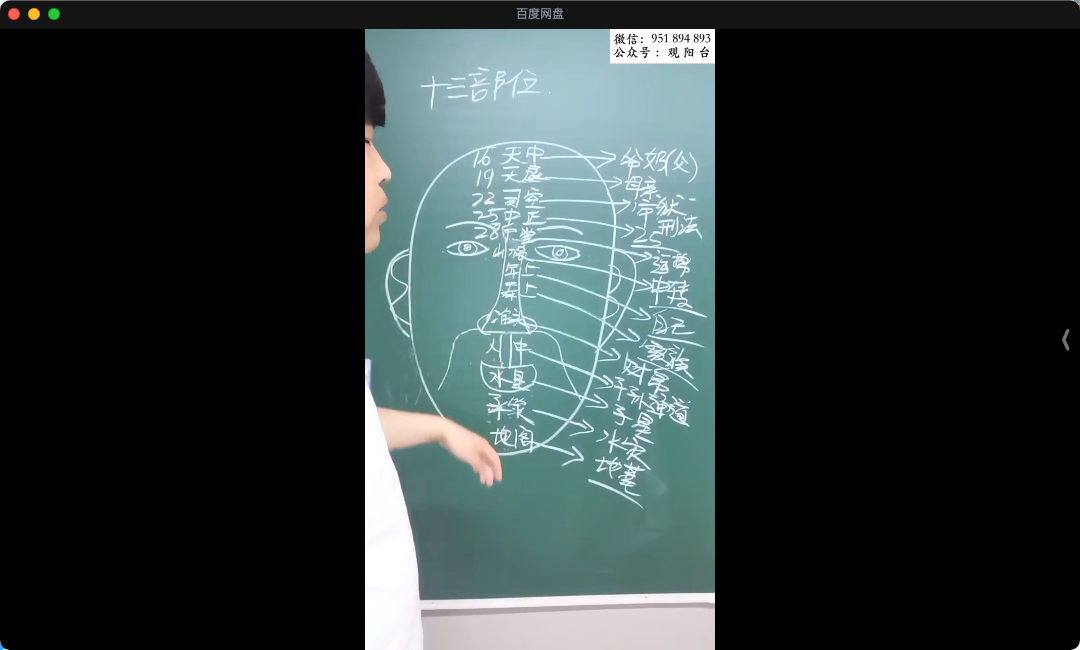 百度网盘
微信：951 894 893
公众号：观阳台
十三部位.
16 天中 爷奶(父)
19 天庭 母亲
22 司空
25 中正 刑法
28 印堂 25
山根
年上 中转
寿上 自己
准头 家族
人中 财帛
水星 子孙 道
承浆 子星
地阁 水灾
地基